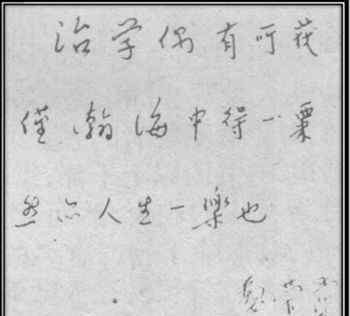 治学偶有所获
僅瀚海中得一粟
然亦人生一樂也